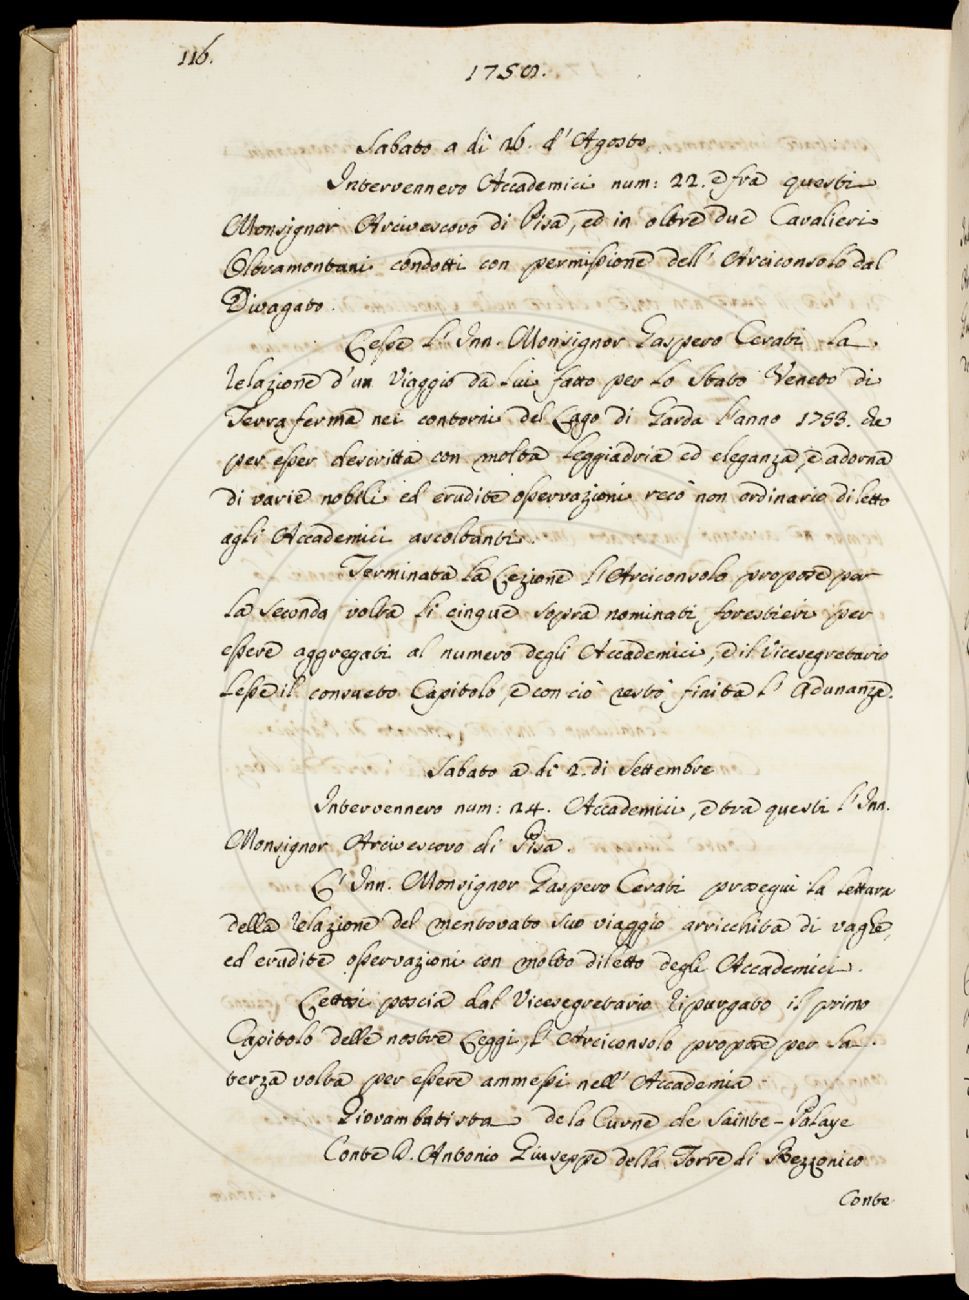 116.
175
Sabato a dì 26. d'Agosto
Intervennero Accademici num: 22. e fra questi
Monsignor Arcivescovo di Pisa, ed in oltre due Cavalieri
Oltramontani condotti con permissione dell'Arciconsolo dal
Divagato.
Lesse l'Inn. Monsignor Gaspero Cerati la
relazione d'un Viaggio da lui fatto per lo Stato Veneto di
Terra ferma nei contorni del Lago di Garda l'anno 1753. che
per esser descritta con molta leggiadria ed eleganza, e adorna
di varie nobili ed erudite osservazioni recò non ordinario diletto
agli Accademici ascoltanti.
Terminata la Lezione l'Arciconsolo propose per
la seconda volta li cinque sopra nominati forestieri per
essere aggregati al numero degli Accademici, e il Vicesegretario
lesse il consueto Capitolo, e con ciò restò finita l'Adunanza.
Sabato a dì 2. di Settembre
Intervennero num: 24. Accademici, e tra questi l'Inn.
Monsignor Arcivescovo di Pisa.
L'Inn. Monsignor Gaspero Cerati proseguì la lettura
della relazione del mentovato suo viaggio arricchita di vaghe,
ed erudite osservazioni con molto diletto degli Accademici.
Lettosi poscia dal Vicesegretario Ripurgato il primo
Capitolo delle nostre Leggi, l'Arciconsolo propose per la
terza volta per essere ammessi nell'Accademia
Giovambatista de la Curne de Sainte-Palaye
Conte D. Antonio Giuseppe della Torre di Rezzonico
Conte